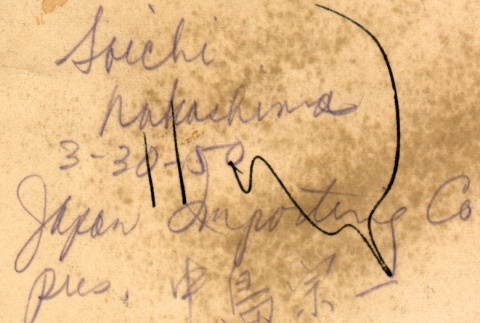 Soichi
Nakashima
3-30-50
Japan Importing Co
pres. 中島宗一